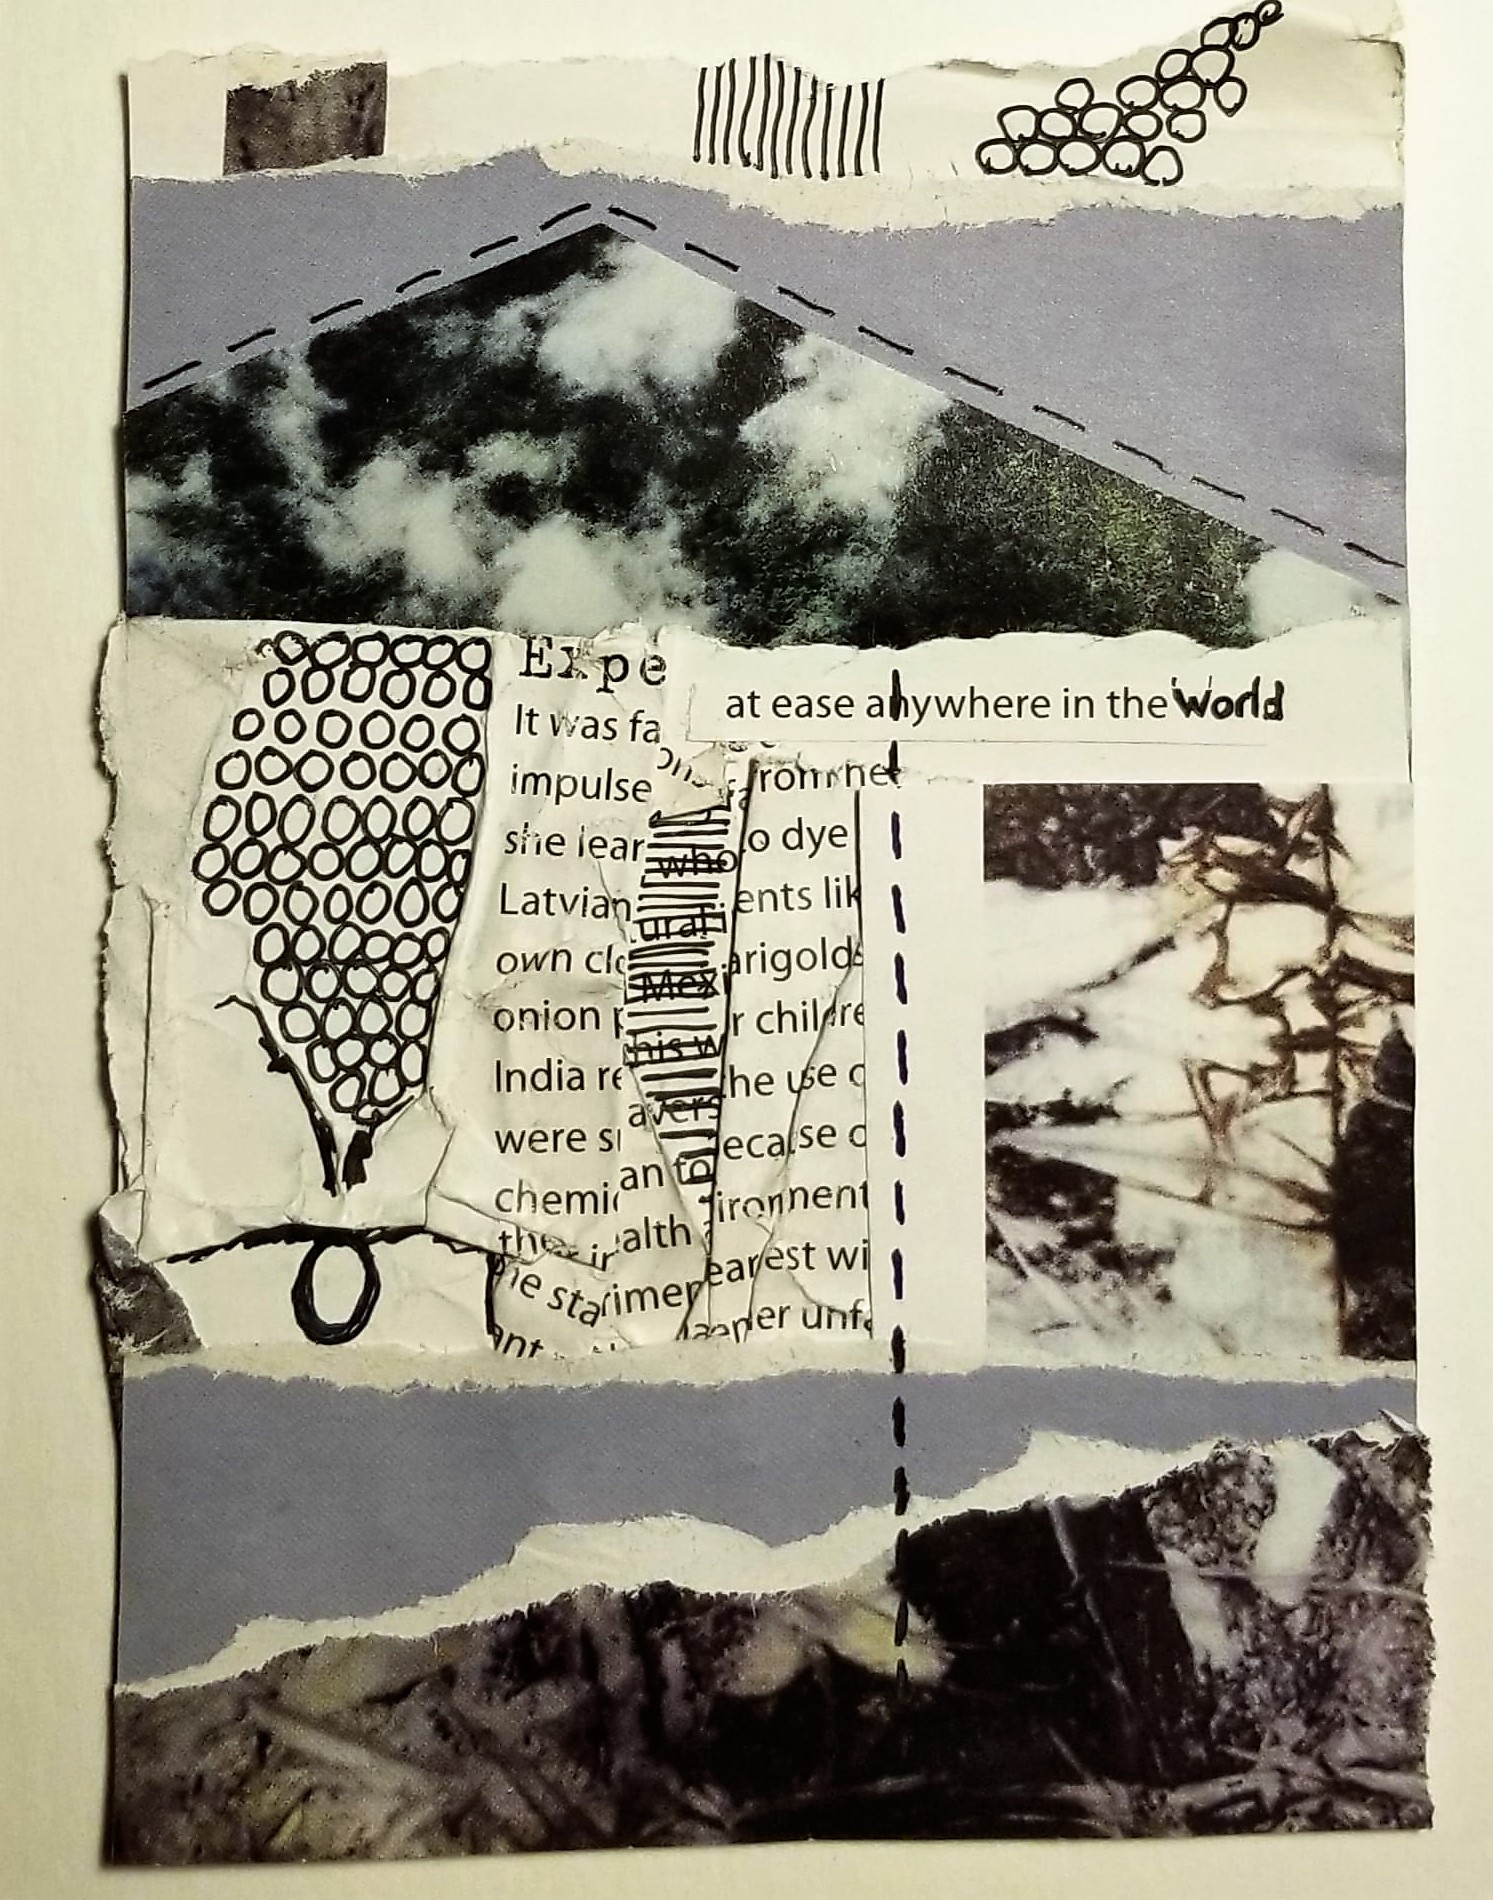 Expe
at ease anywhere in the World
It was fa
impulse
she lear who o dye
Latvian ural ents lik
own clo Mexi arigolds
onion p r childre
India re his w he use o
were s avers ecause o
chemic an to ironment
their alth
the sta rimen earest wi
ant er unfa